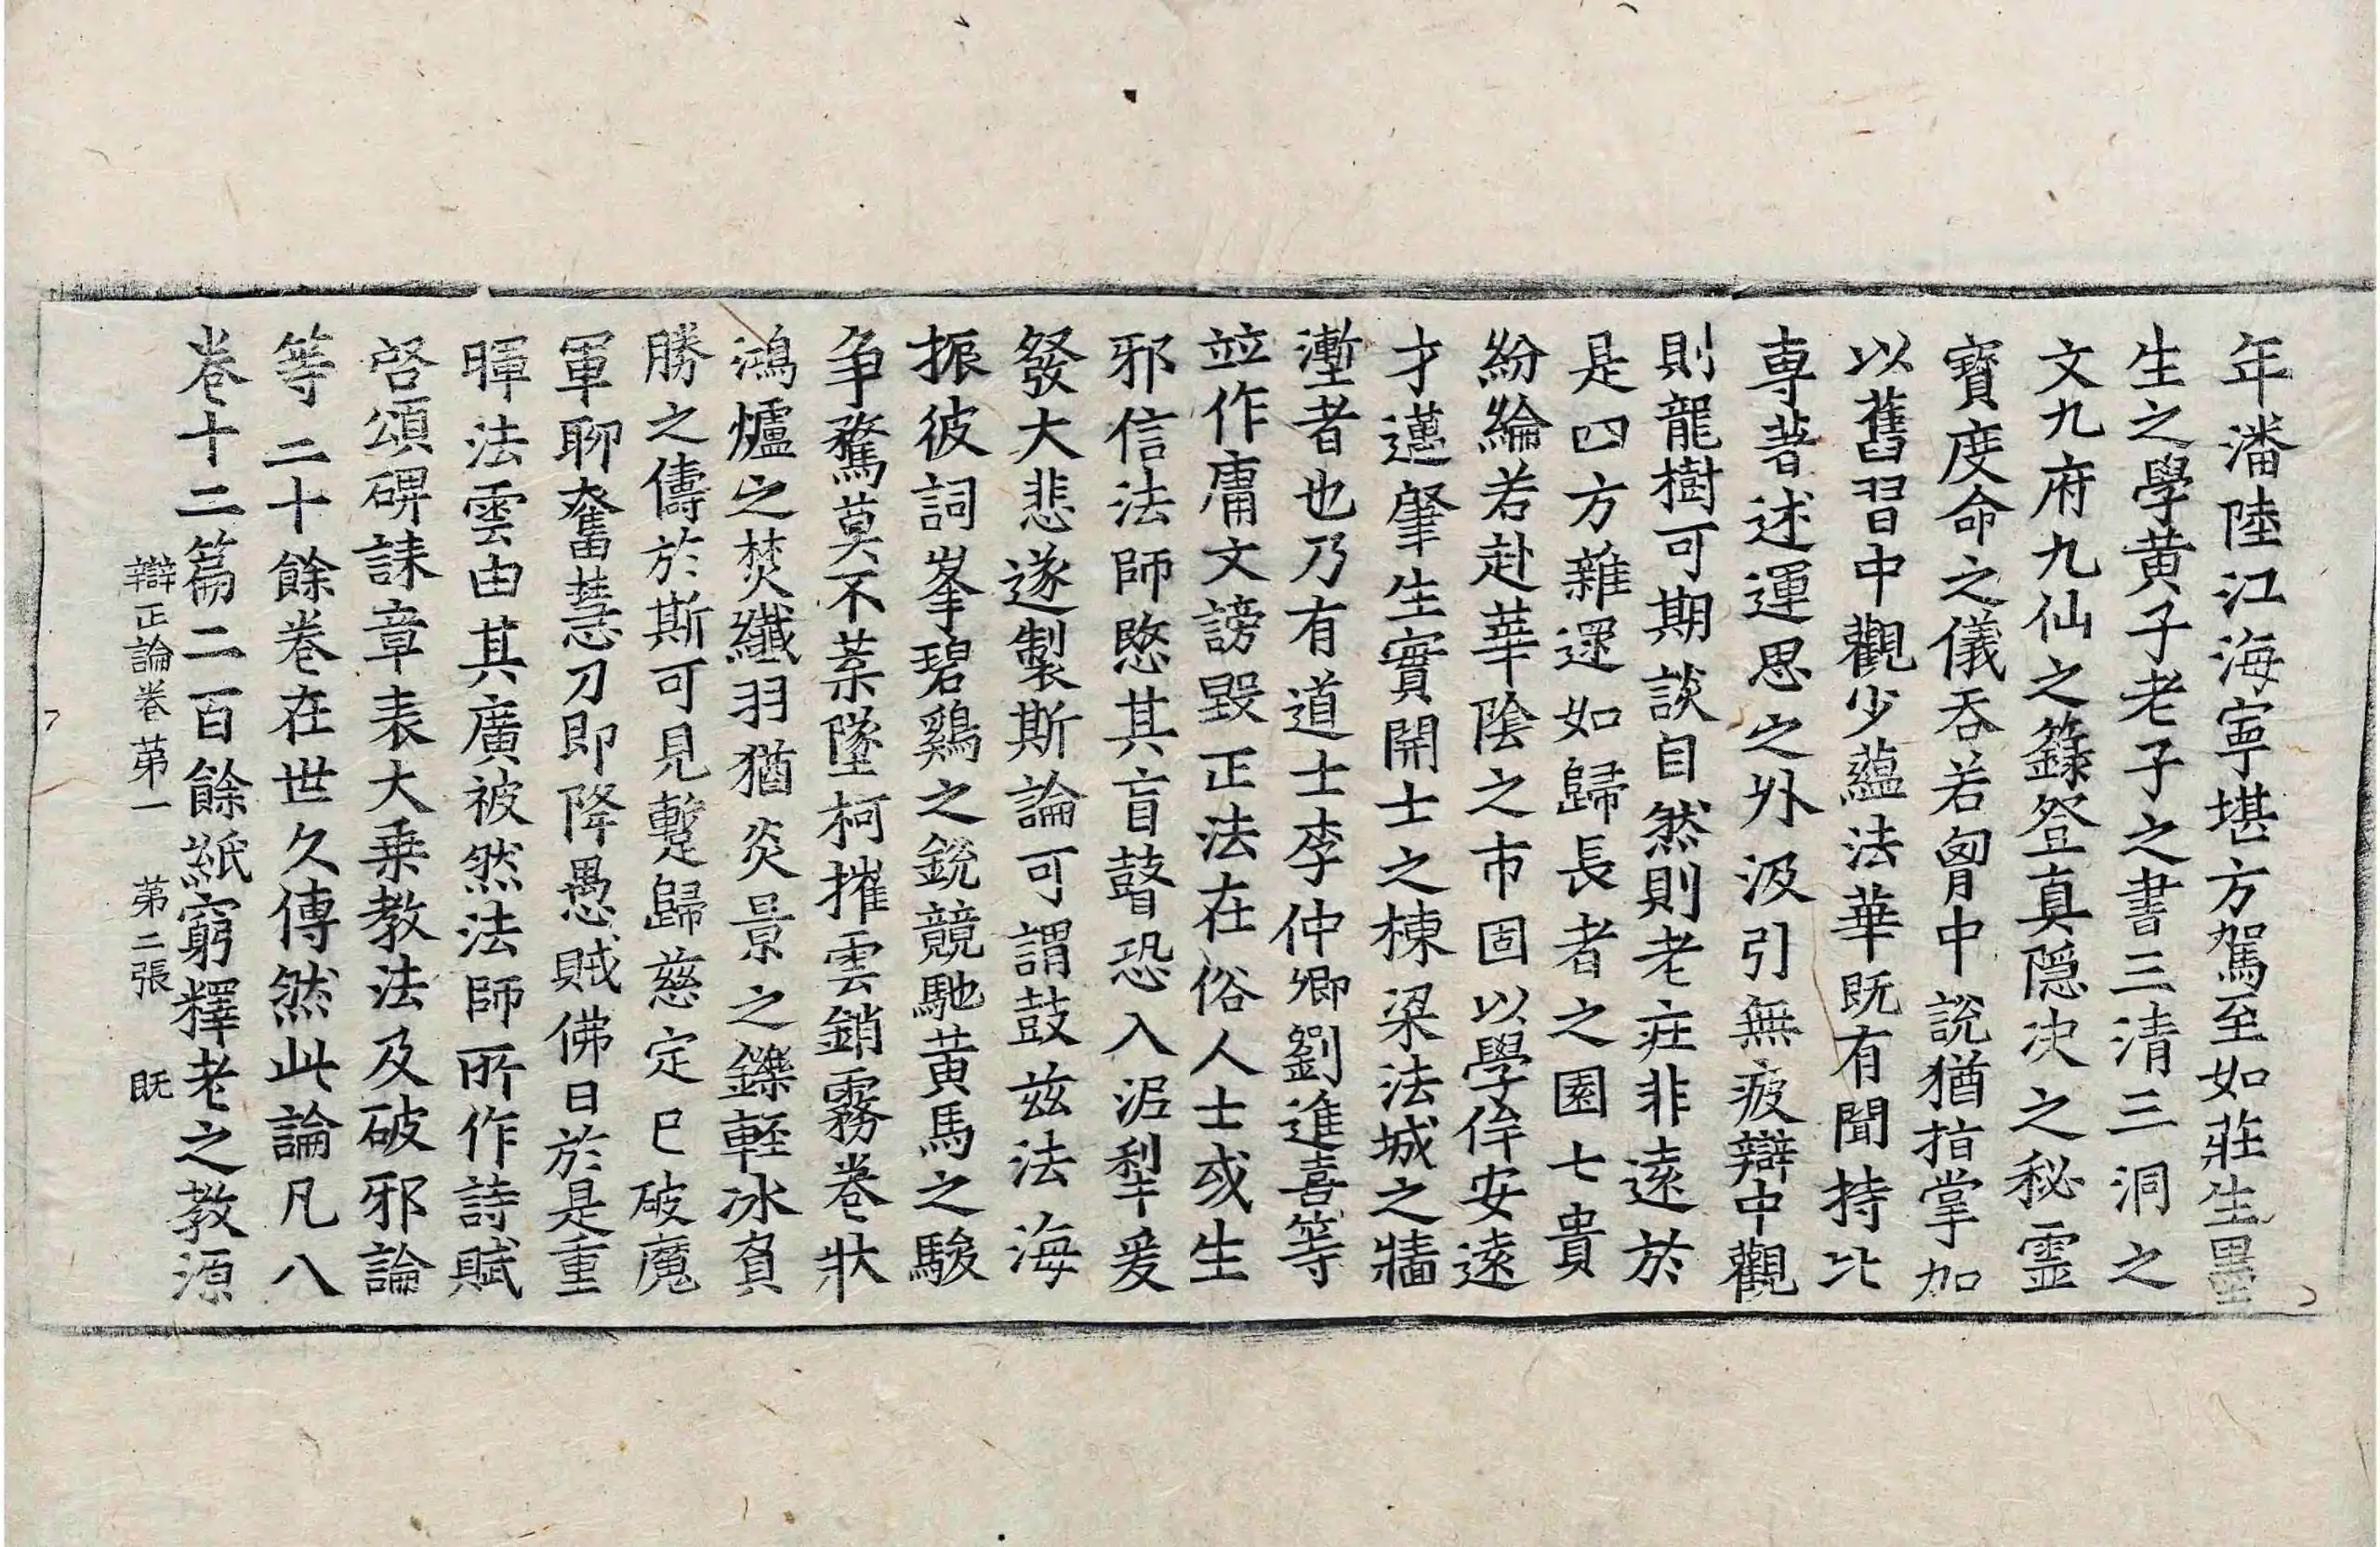 年潘陸江海寧堪方駕至如莊生墨
生之學黃子老子之書三清三洞之
文九府九仙之籙登真隱决之秘靈
寶度命之儀吞若胷中說猶指掌加
以舊習中觀少蘊法華既有聞持比
專著述運思之外汲引無疲辯中觀
則龍樹可期談自然則老莊非遠於
是四方雜遝如歸長者之園七貴
紛綸若赴華陰之市固以學侔安遠
才邁肇生實開士之棟梁法城之牆
壍者也乃有道士李仲卿劉進喜等
竝作庸文謗毀正法在俗人士或生
邪信法師愍其盲瞽恐入泥犁爰
發大悲遂製斯論可謂鼓茲法海
振彼詞峯碧鷄之銳競馳黃馬之駿
爭騖莫不葉墜柯摧雲銷霧卷狀
鴻爐之焚纖羽猶炎景之鑠輕冰負
勝之儔於斯可見蹔歸慈定已破魔
軍聊奮慧刀即降愚賊佛日於是重
暉法雲由其廣被然法師所作詩賦
啓頌碑誄章表大乗教法及破邪論
等二十餘卷在世久傳然此論凡八
卷十二篇二百餘紙窮釋老之教源
辯正論卷第一 第二張 既